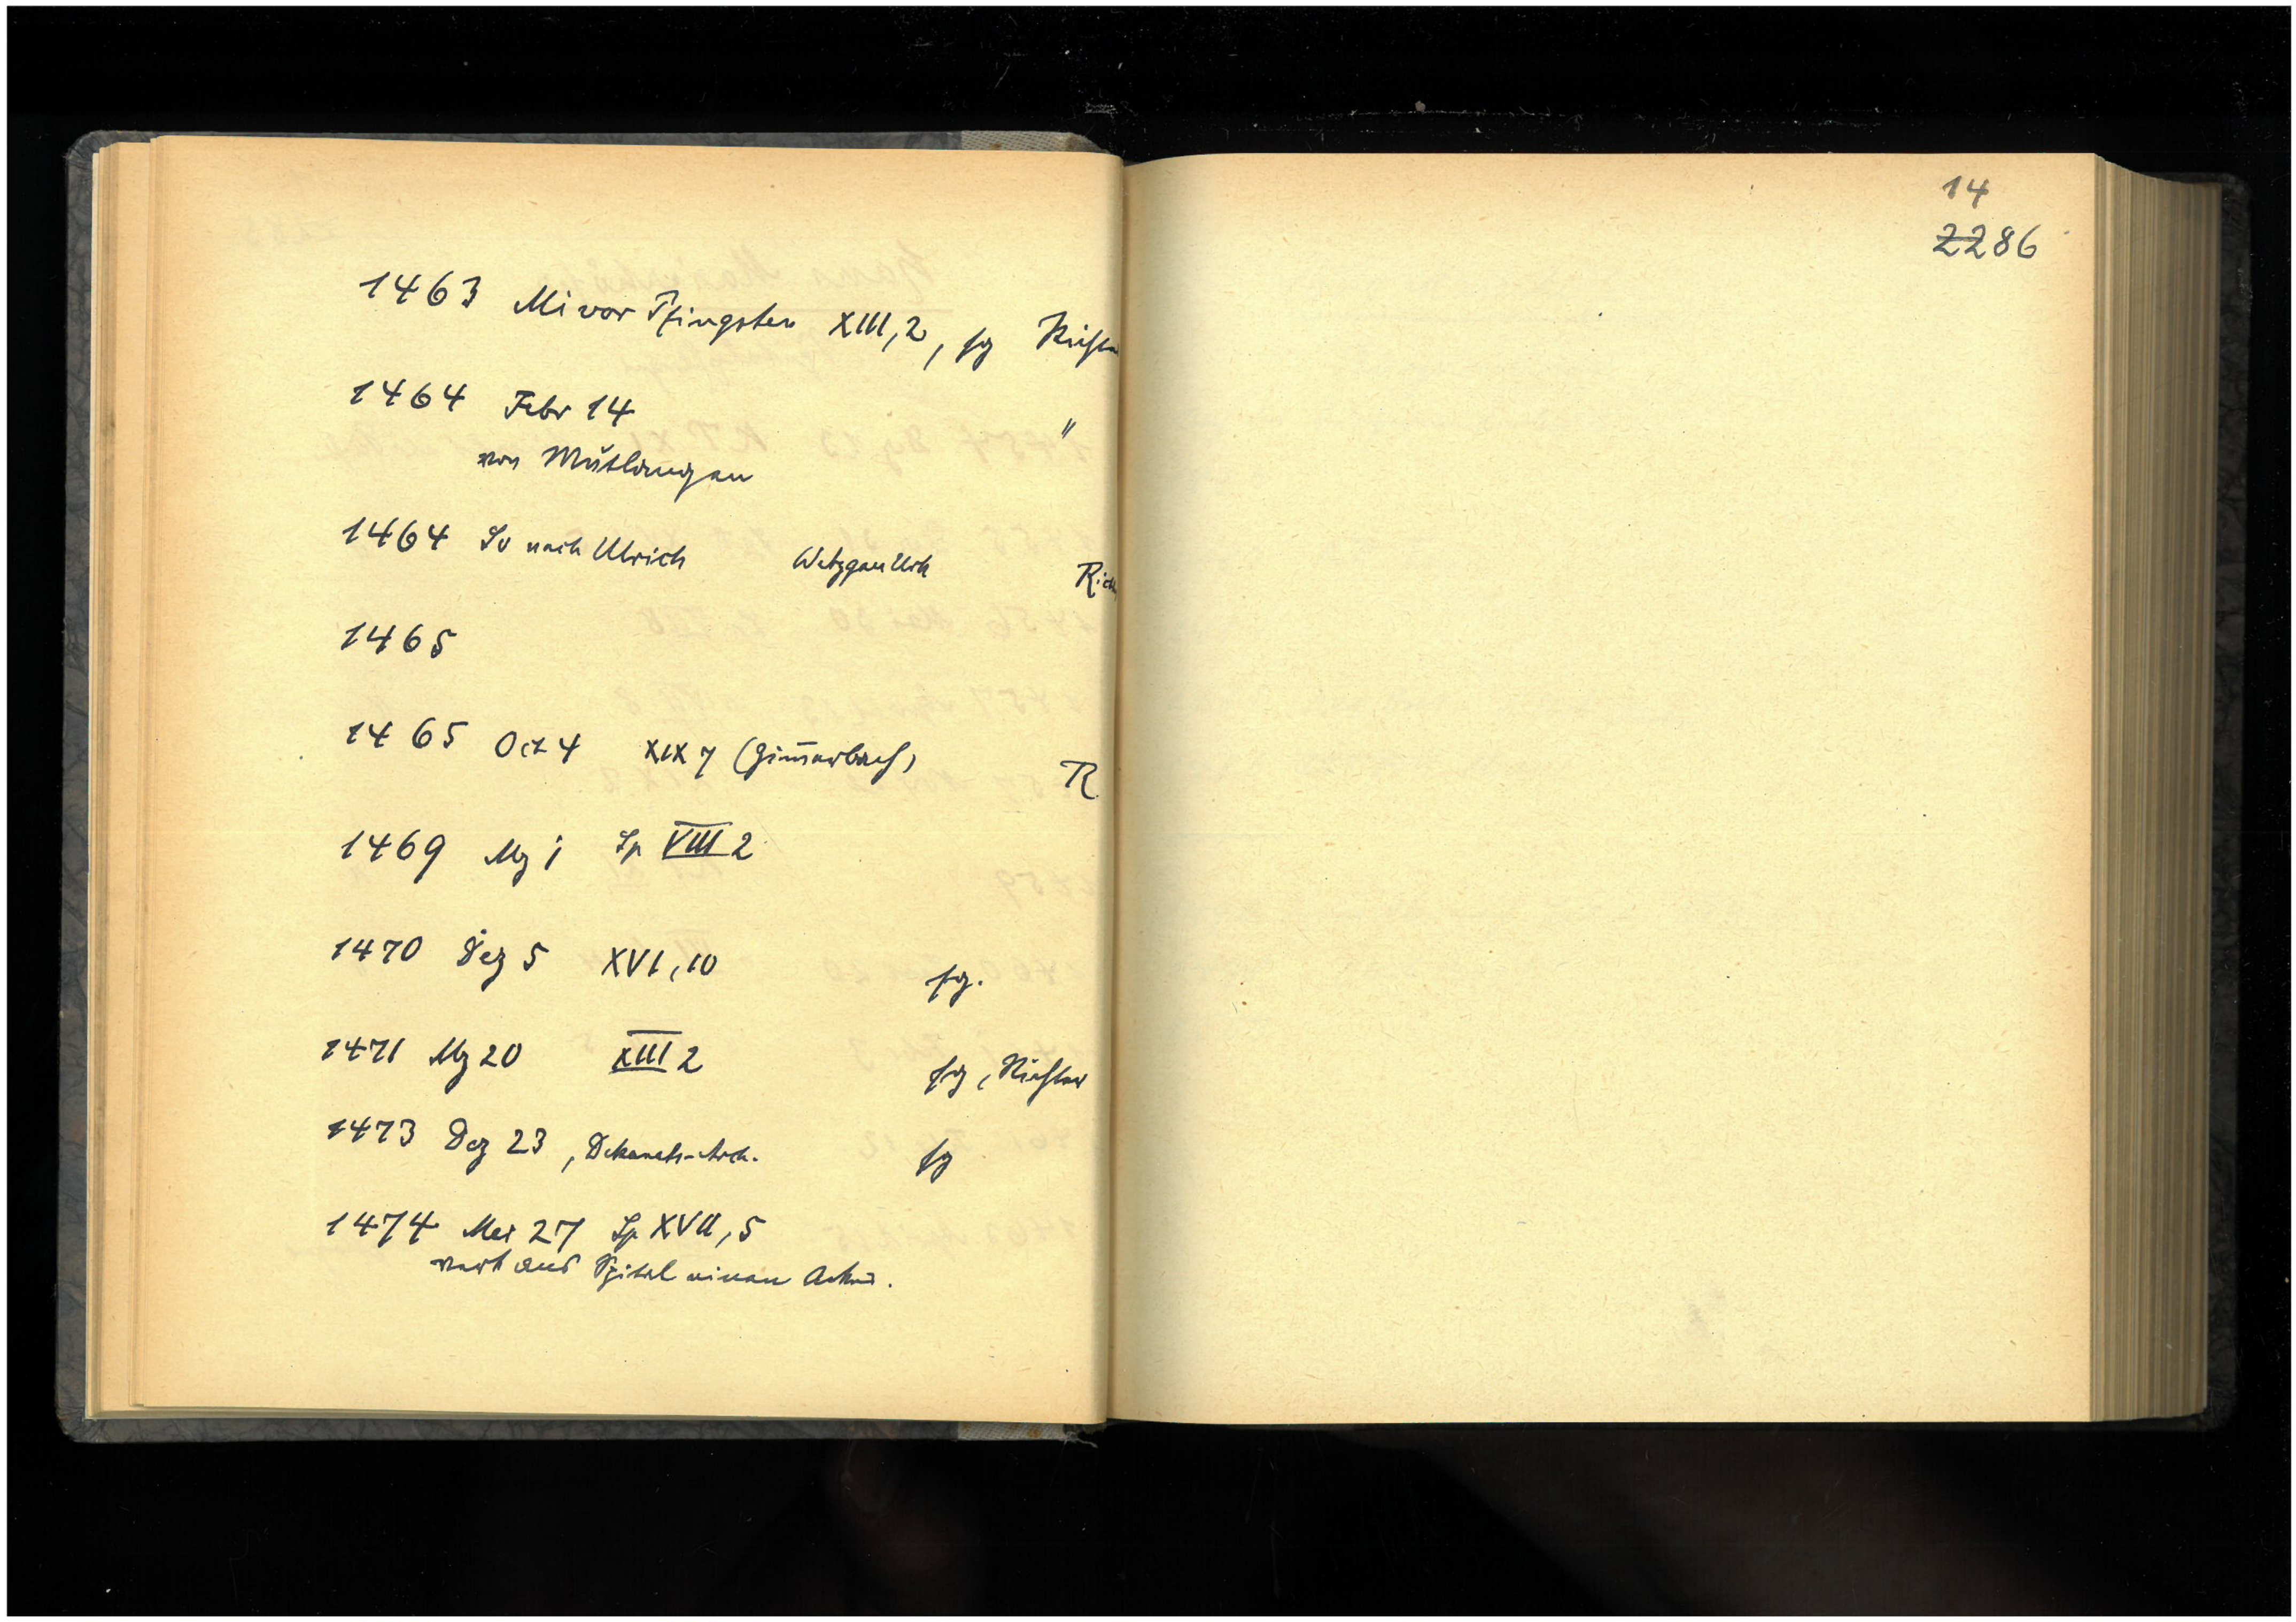 1463 Mi vor Pfingsten XIII, 2, sg Richter
1464 Febr 14 "
von Mutlangen
1464 So nach Ulrich Wetzgau Urk Rich
1465
1465 Oct 4 XIX 7 (Zimerbach) R.
1469 Mz 1 Sp VIII 2
1470 Dez 5 XVI, 10 sg.
1471 Mz 20 XIII 2 sg, Richter
1473 Dez 23, Dekanats-Arch. sg
1474 Mai 27 Sp XVII, 5
verk ans Spital einen Acker.
14
2286